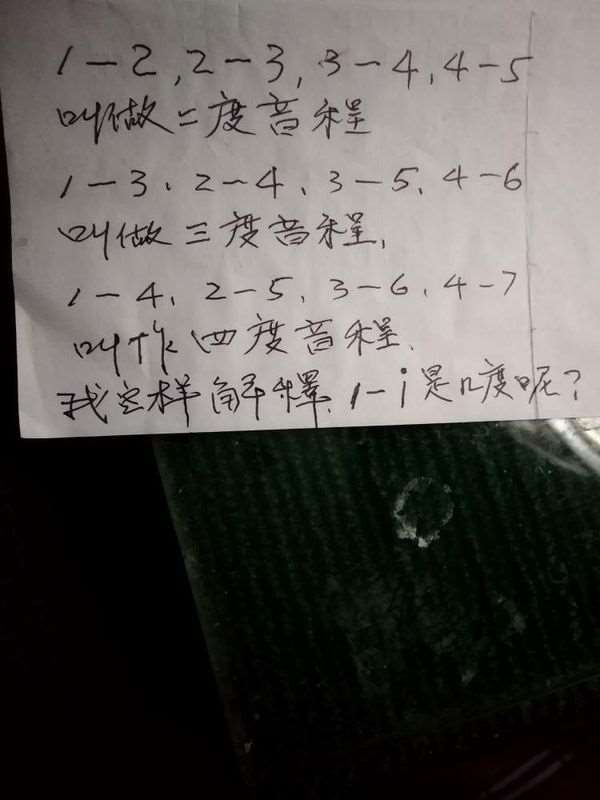 1－2,2－3,3－4,4－5
叫做二度音程
1－3、2－4、3－5、4－6
叫做三度音程,
1－4、2－5、3－6、4－7
叫作四度音程.
我这样解釋.1－i是几度呢?